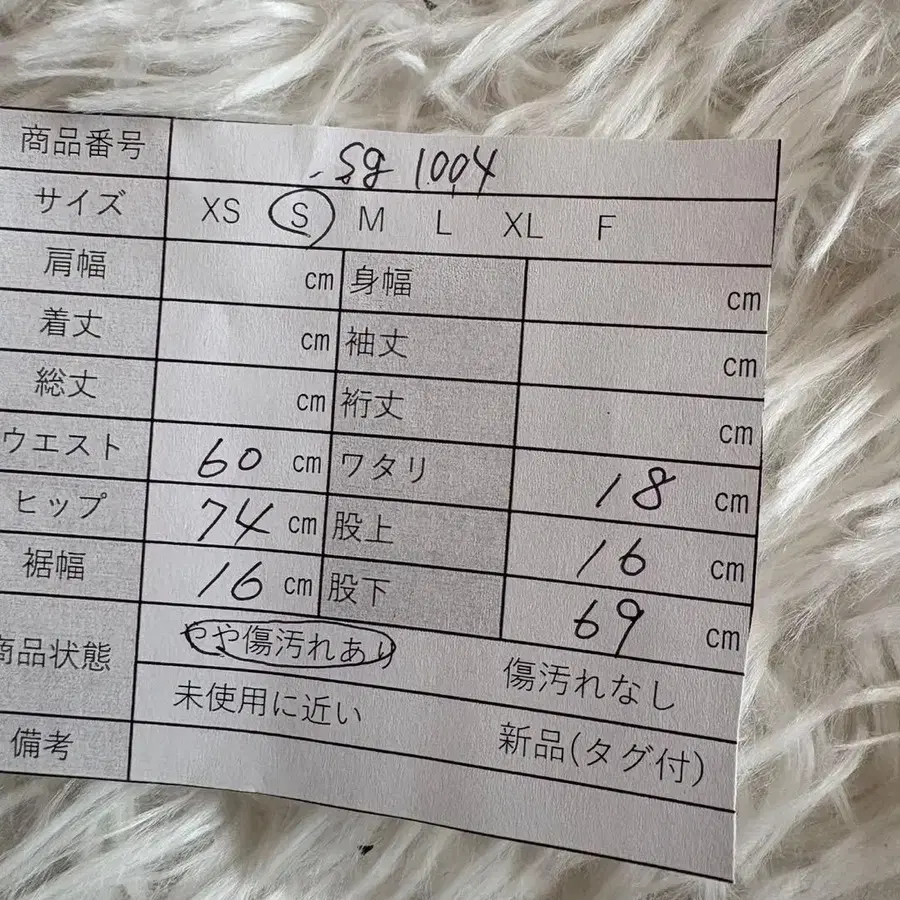 商品番号 sg 1004
サイズ XS S M L XL F
肩幅 cm 身幅 cm
着丈 cm 袖丈 cm
総丈 cm 裄丈 cm
ウエスト 60 cm ワタリ 18 cm
ヒップ 74 cm 股上 16 cm
裾幅 16 cm 股下 69 cm
商品状態 やや傷汚れあり 傷汚れなし
未使用に近い 新品(タグ付)
備考